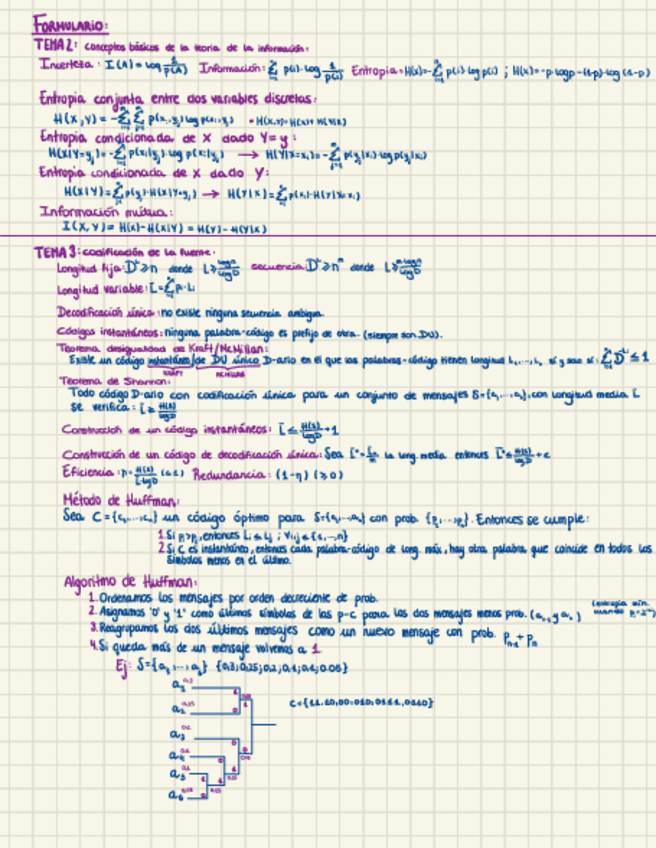 FORMULARIO:
TEMA 2: conceptos básicos de la teoría de la información:
Incerteza: I(A) = log 1/p(A) Información: Σ p(i)·log 1/p(i) Entropía: H(x) = -Σ p(i)·log p(i) ; H(x) = -p·logp-(1-p)·log(1-p)
Entropía conjunta entre dos variables discretas:
H(X,Y) = -ΣΣ p(xi,yj) log p(xi,yj)
Entropía condicionada de X dado Y=y:
H(X|Y=yj) = -Σ p(xi|yj)·log p(xi|yj) → H(Y|X=xi) = -Σ p(yj|xi)·log p(yj|xi)
Entropía condicionada de X dado Y:
H(X|Y) = Σ p(yj)·H(X|Y=yj) → H(Y|X) = Σ p(xi)·H(Y|X=xi)
Información mutua:
I(X,Y) = H(X)-H(X|Y) = H(Y)-H(Y|X)
TEMA 3: codificación de la fuente:
Longitud fija: D^L ≥ n donde L ≥ logn/logD secuencia: D^L ≥ n^m donde L ≥ m·logn/logD
Longitud variable: L = Σ pi·Li
Decodificación única: no existe ninguna secuencia ambigua.
Códigos instantáneos: ninguna palabra-código es prefijo de otra. (siempre son DU).
Teorema desigualdad de Kraft/McMillan:
Existe un código instantáneo/de DU único D-ario en el que las palabras-código tienen longitud L1,...,Ln sí y solo si: Σ D^-Li ≤ 1
KRAFT McMILLAN
Teorema de Shannon:
Todo código D-ario con codificación única para un conjunto de mensajes S={a1,...,an}, con longitud media L
se verifica: L ≥ H(S)/logD
Construcción de un código instantáneos: L ≤ H(S)/logD + 1
Construcción de un código de decodificación única: Sea la long. media entonces
Eficiencia: η = H(S)/L·logD (≤1) Redundancia: (1-η) (≥0)
Método de Huffman:
Sea C={c1,...,cn} un código óptimo para S={a1,...,an} con prob. {p1,...,pn}. Entonces se cumple:
1. Si pi>pj, entonces Li≤Lj ; ∀i,j∈{1,...,n}
2. Si C es instantáneo, entonces cada palabra-código de long. máx, hay otra palabra que coincide en todos los
símbolos menos en el último.
Algoritmo de Huffman:
1. Ordenamos los mensajes por orden decreciente de prob.
2. Asignamos '0' y '1' como últimos símbolos de las p-c para los dos mensajes menos prob. (an-1 y an)
3. Reagrupamos los dos últimos mensajes como un nuevo mensaje con prob. pn-1 + pn
4. Si queda más de un mensaje volvemos a 1.
Ej: S={a1,...,a6} {0,3;0,25;0,2;0,1;0,1;0.05}
a1
a2
a3
a4
a5
a6